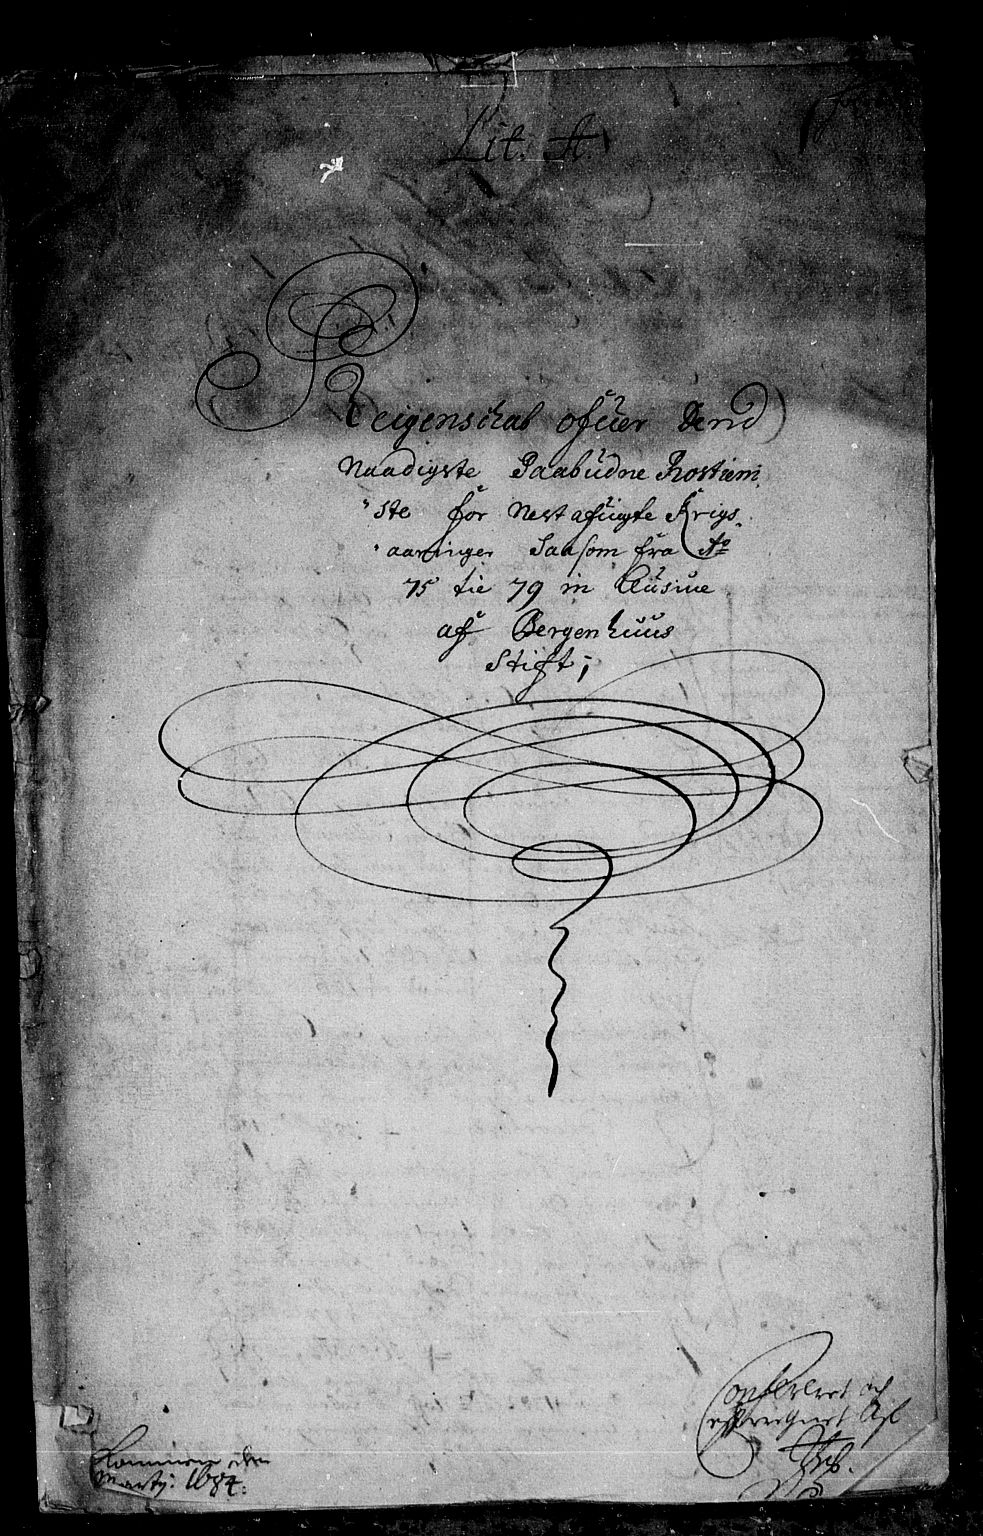 Lit. A
Reigenschab ofuer Dend
Naadigste Paabudne Rostiæni
"ste for Nest afuigte Krigs
"aaringer Saasom fra Ao
75 tie 79 in Clusiue
af Bergenhuus
Stift;
Confereret och
Martij: 1684: